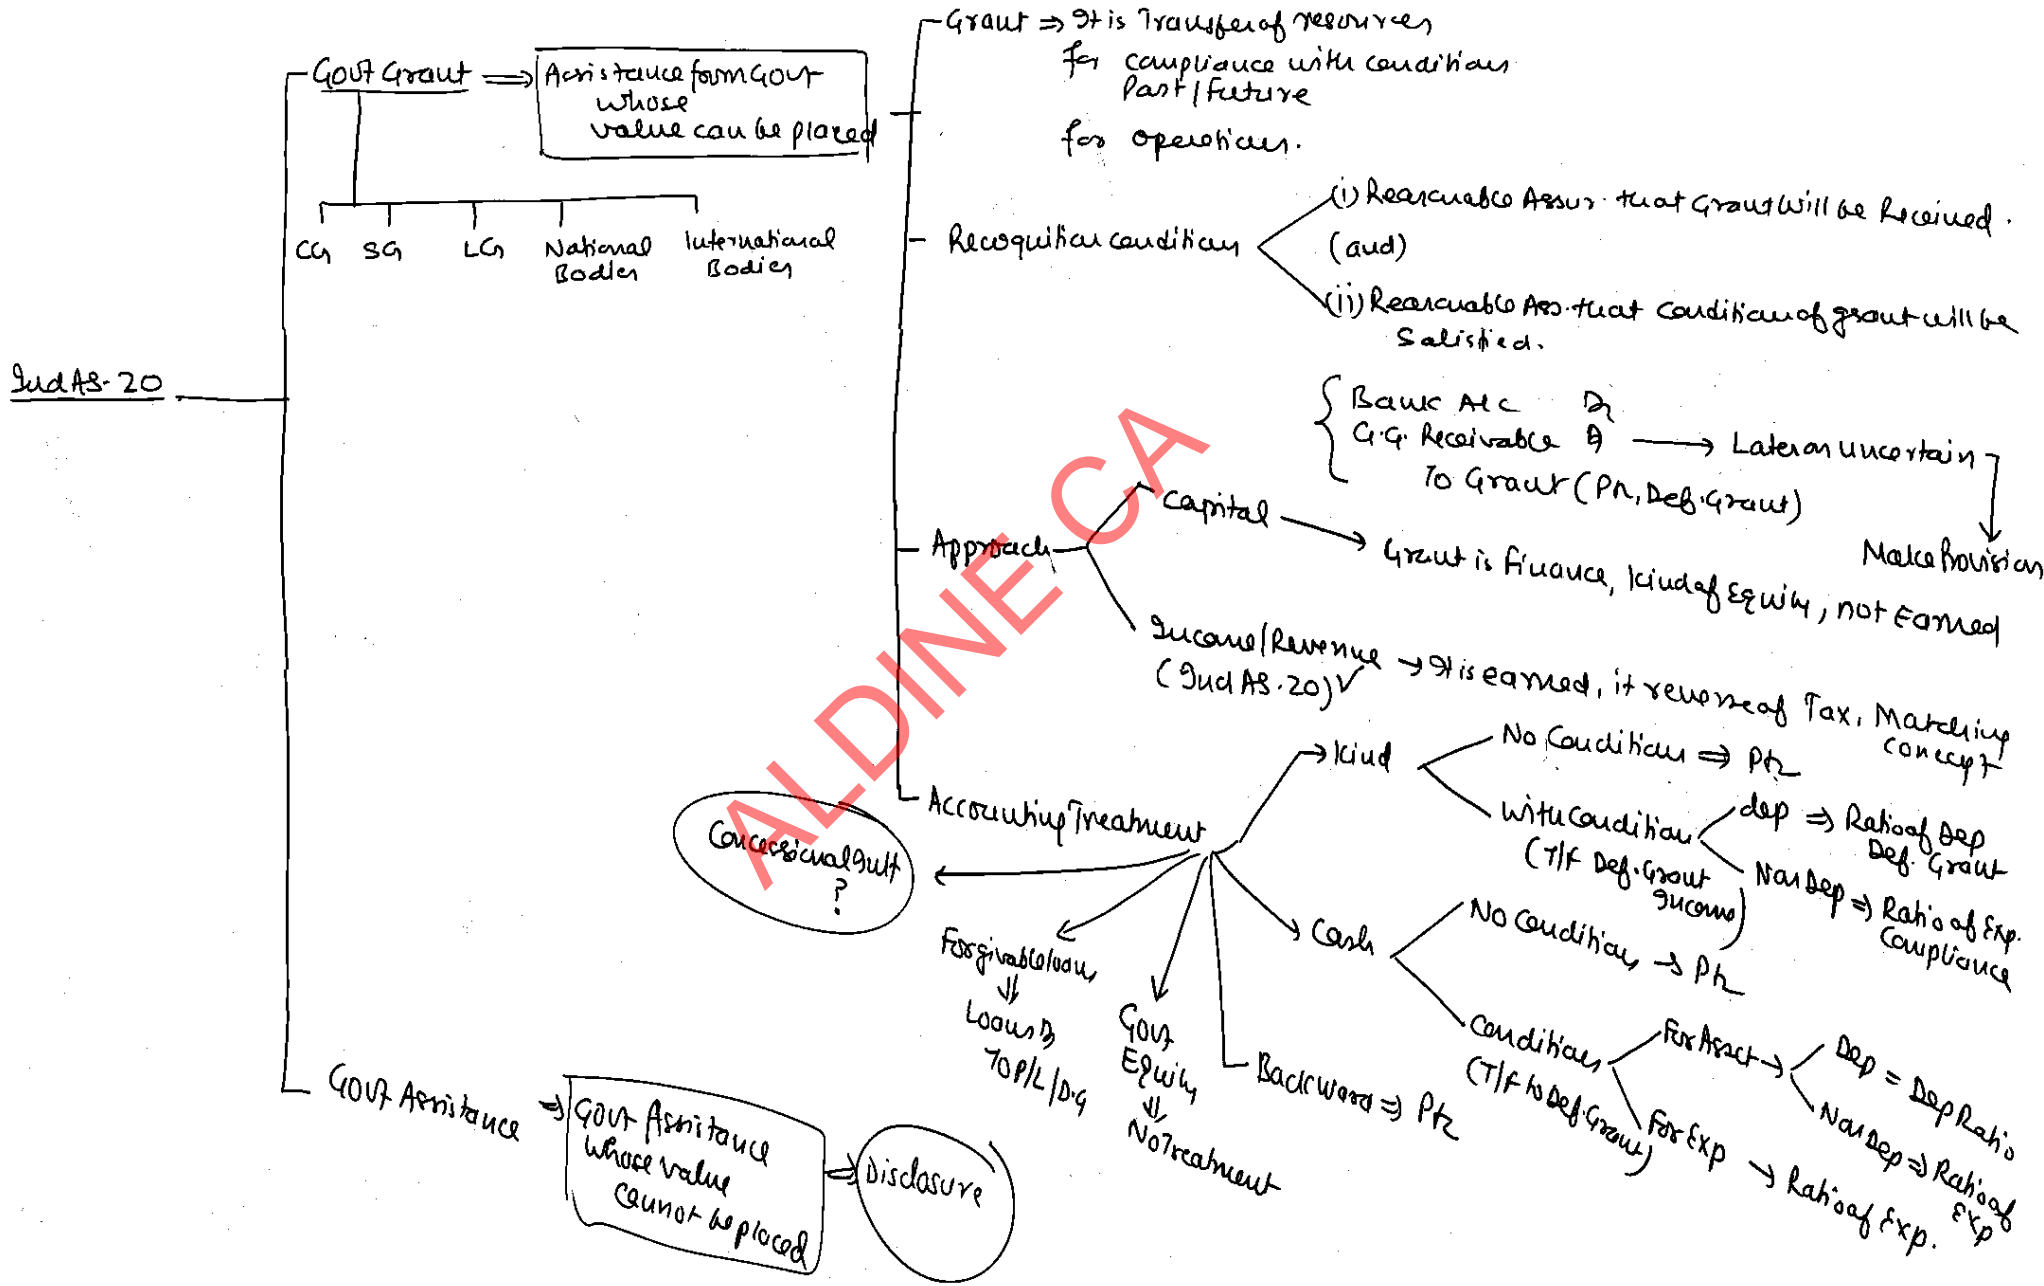 Ind AS-20
Govt Grant ⇒ Assistance from Govt
whose
value can be placed
CG SG LG National Bodies International Bodies
Grant ⇒ It is Transfer of resources
for compliance with conditions
Past/Future
for operations.
Recognition conditions
(i) Reasonable Assur. that Grant will be Received.
(and)
(ii) Reasonable Ass. that condition of grant will be
Satisfied.
Bank A/c Dr
G.G. Receivable Dr → Later on uncertain
To Grant (P/L, Def. Grant)
Make Provision
Approach
Capital → Grant is finance, kind of Equity, not Earned
Income/Revenue → It is earned, it reverse of Tax, Matching
(Ind AS-20) ✓
concept
Accounting Treatment
Kind
No Condition ⇒ P/L
with condition
(T/f Def. Grant
Income)
dep ⇒ Ratio of Dep
Def. Grant
Non Dep ⇒ Ratio of Exp.
Compliance
Cash
No Condition → P/L
Conditions
(T/f to Def. Grant)
For Asset →
Dep = Dep Ratio
Non Dep ⇒ Ratio of
Exp
For Exp → Ratio of Exp.
Backward ⇒ P/L
Govt
Equity
⇓
No Treatment
Forgivable loans
⇓
Loans Dr
To P/L/D.G
Concessional Intt
?
Govt Assistance ⇒ Govt Assistance
whose value
cannot be placed
⇒ Disclosure
ALDINE CA